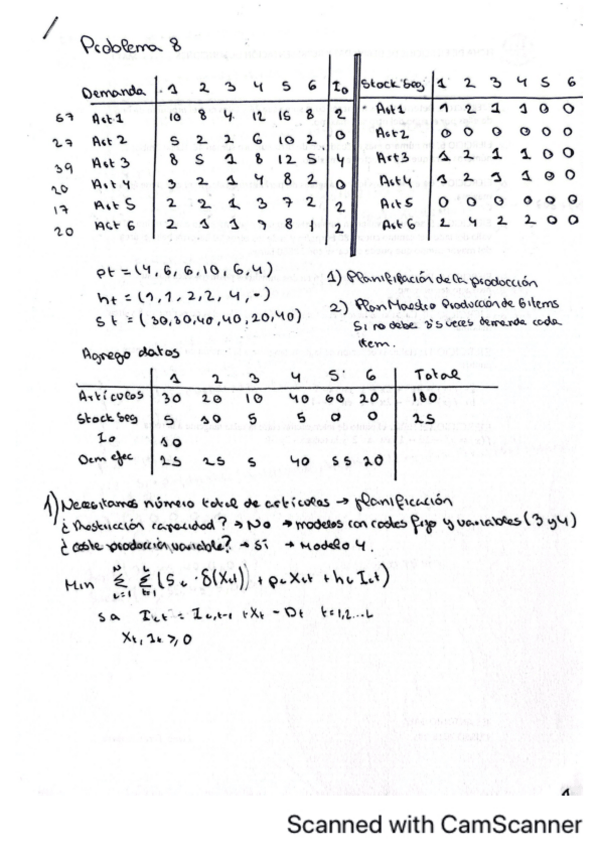 Problema 8
Demanda 1 2 3 4 5 6 I0 Stock Seg 1 2 3 4 5 6
57 Art 1 10 8 4 12 15 8 2 Art 1 1 2 1 1 0 0
27 Art 2 5 2 2 6 10 2 0 Art 2 0 0 0 0 0 0
39 Art 3 8 5 1 8 12 5 4 Art 3 1 2 1 1 0 0
20 Art 4 3 2 1 4 8 2 0 Art 4 1 2 1 1 0 0
17 Art 5 2 2 1 3 7 2 2 Art 5 0 0 0 0 0 0
20 Art 6 2 1 1 7 8 1 2 Art 6 2 4 2 2 0 0
pt = (4, 6, 6, 10, 6, 4)
ht = (1, 1, 2, 2, 4, -)
st = (30, 30, 40, 40, 20, 40)
1) Planificación de la producción
2) Plan Maestro Producción de 6 items
Si no debe veces demanda cada
item.
Agrego datos
1 2 3 4 5 6 Total
Artículos 30 20 10 40 60 20 180
Stock Seg 5 10 5 5 0 0 25
I0 10
Dem efec 25 25 5 40 55 20
1) Necesitamos número total de artículos → planificación
¿Restricción capacidad? → No → modelos con costes fijo y variables (3 y 4)
¿coste producción variable? → Sí → Modelo 4.
Min Σ Σ (Si · δ(Xit) + pi Xit + hi Iit)
sa Ii,t = Ii,t-1 + Xt - Dt t=1,2...L
Xt, It ≥ 0
1
Scanned with CamScanner